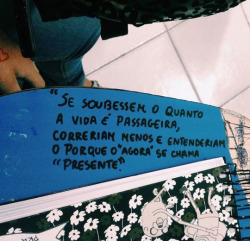 "SE SOUBESSEM O QUANTO
A VIDA É PASSAGEIRA,
CORRERIAM MENOS E ENTENDERIAM
O PORQUE O "AGORA" SE CHAMA
"PRESENTE".